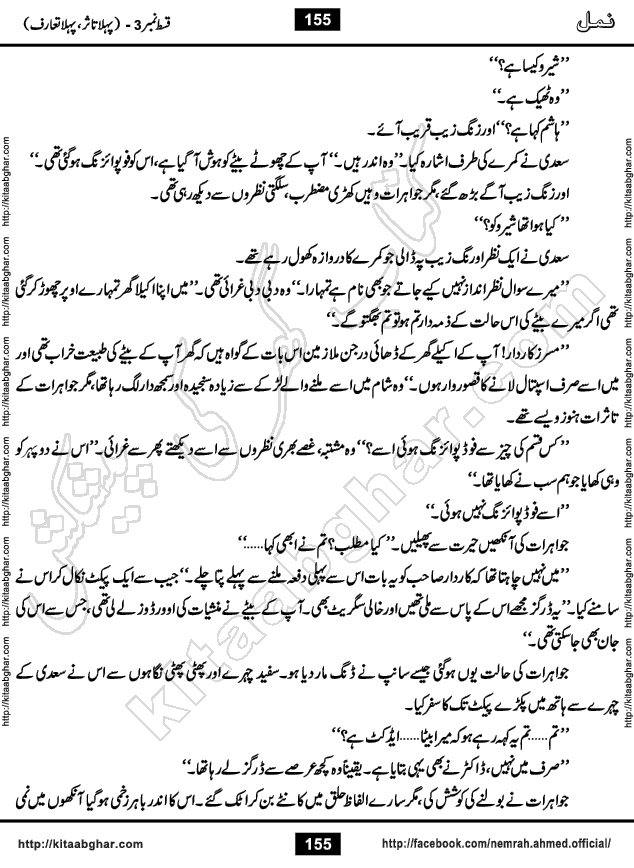 نمل
155
قسط نمبر 3 - (پہلا تاثر، پہلا تعارف)
’’شیرو کیسا ہے؟‘‘
’’وہ ٹھیک ہے۔‘‘
’’ہاشم کہا ہے؟‘‘ اورنگ زیب قریب آئے۔
سعدی نے کمرے کی طرف اشارہ کیا۔ ’’وہ اندر ہیں۔‘‘ آپ کے چھوٹے بیٹے کو ہوش آ گیا ہے، اس کو فوڈ پوائزننگ ہو گئی تھی۔‘‘
اورنگ زیب آگے بڑھ گئے، مگر جواہرات وہیں کھڑی مضطرب، سلگتی نظروں سے دیکھ رہی تھی۔
’’کیا ہوا تھا شیرو کو؟‘‘
سعدی نے ایک نظر اورنگ زیب پہ ڈالی جو کمرے کا دروازہ کھول رہے تھے۔
’’میرے سوال نظر انداز نہیں کیے جاتے جو بھی نام ہے تمہارا۔‘‘ وہ دبی دبی غرائی تھی۔ ’’میں اپنا اکیلا گھر تمہارے اوپر چھوڑ کر گئی
تھی اگر میرے بیٹے کی اس حالت کے ذمہ دار تم ہو تو تم بھگتو گے۔‘‘
’’مسز کاردار! آپ کے اکیلے گھر کے ڈھائی درجن ملازمین اس بات کے گواہ ہیں کہ گھر آپ کے بیٹے کی طبیعت خراب تھی اور
میں اسے صرف اسپتال لانے کا قصور وار ہوں۔‘‘ وہ شام میں اسے ملنے والے لڑکے سے زیادہ سنجیدہ اور سمجھدار لگ رہا تھا، مگر جواہرات کے
تاثرات ہنوز ویسے تھے۔
’’کس قسم کی چیز سے فوڈ پوائزننگ ہوئی اسے؟‘‘ وہ مشتبہ، غصے بھری نظروں سے اسے دیکھتے پھر سے غرائی۔ ’’اس نے دوپہر کو
وہی کھایا جو ہم سب نے کھایا تھا۔‘‘
’’اسے فوڈ پوائزننگ نہیں ہوئی۔‘‘
جواہرات کی آنکھیں حیرت سے پھیلیں۔ ’’کیا مطلب؟ تم نے ابھی کہا......‘‘
’’میں نہیں چاہتا تھا کہ کاردار صاحب کو یہ بات اس سے پہلی دفعہ ملنے سے پہلے پتا چلے۔‘‘ جیب سے ایک پیکٹ نکال کر اس نے
سامنے کیا۔ ’’یہ ڈرگز مجھے اس کے پاس سے ملی تھیں اور خالی سگریٹ بھی۔ آپ کے بیٹے نے منشیات کی اوور ڈوز لے لی تھی، جس سے اس کی
جان بھی جا سکتی تھی۔‘‘
جواہرات کی حالت یوں ہو گئی جیسے سانپ نے ڈنگ مار دیا ہو۔ سفید چہرے اور پھٹی پھٹی نگاہوں سے اس نے سعدی کے
چہرے سے ہاتھ میں پکڑے پیکٹ تک کا سفر کیا۔
’’تم...... تم یہ کہہ رہے ہو کہ میرا بیٹا...... ایڈکٹ ہے؟‘‘
’’صرف میں نہیں، ڈاکٹر نے بھی یہی بتایا ہے۔ یقیناً وہ کچھ عرصے سے ڈرگز لے رہا تھا۔‘‘
جواہرات نے بولنے کی کوشش کی، مگر سارے الفاظ حلق میں کانٹے بن کر اٹک گئے۔ اس کا اندر باہر زخمی ہو گیا آنکھوں میں نمی
http://kitaabghar.com
155
http://facebook.com/nemrah.ahmed.official/
http://kitaabghar.com
http://kitaabghar.com
http://kitaabghar.com
http://kitaabghar.com
http://kitaabghar.com
http://kitaabghar.com
http://kitaabghar.com
http://kitaabghar.com
http://kitaabghar.com
http://kitaabghar.com
http://kitaabghar.com
http://kitaabghar.com
کتاب گھر کی پیشکش
kitaabghar.com